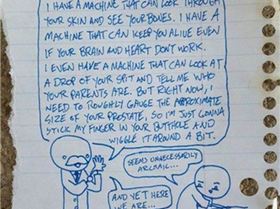 I HAVE A MACHINE THAT CAN LOOK THROUGH
YOUR SKIN AND SEE YOUR BONES. I HAVE A
MACHINE THAT CAN KEEP YOU ALIVE EVEN
IF YOUR BRAIN AND HEART DON'T WORK.
I EVEN HAVE A MACHINE THAT CAN LOOK AT
A DROP OF YOUR SPIT AND TELL ME WHO
YOUR PARENTS ARE. BUT RIGHT NOW, I
NEED TO ROUGHLY GAUGE THE APPROXIMATE
SIZE OF YOUR PROSTATE, SO I'M JUST GONNA
STICK MY FINGER IN YOUR BUTTHOLE AND
WIGGLE IT AROUND A BIT.
SEEMS UNNECESSARILY
ARCHAIC...
AND YET HERE
WE ARE...